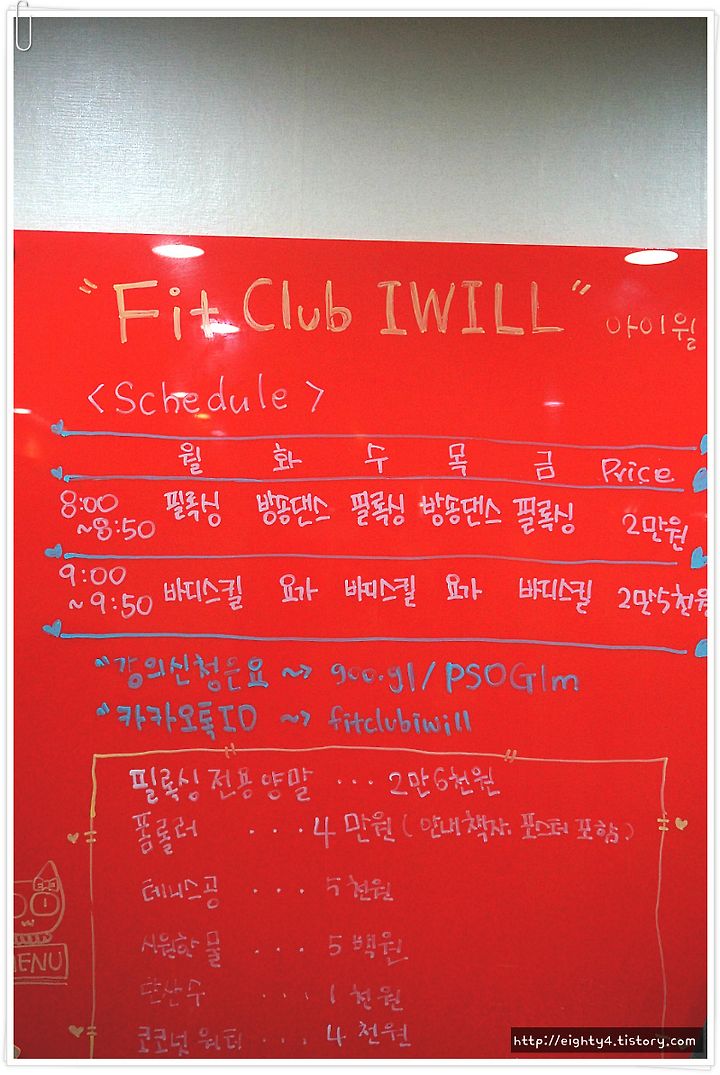 "Fit Club IWILL" 아이윌
<Schedule>
월 화 수 목 금 Price
8:00 ~8:50 필록싱 방송댄스 필록싱 방송댄스 필록싱 2만원
9:00 ~9:50 바디스킬 요가 바디스킬 요가 바디스킬 2만5천원
강의신청은요 ~> goo.gl/PSOGlm
카카오톡ID ~> fitclubiwill
필록싱 전용양말 ··· 2만6천원
폼롤러 ··· 4만원 (안내책자, 포스터 포함)
테니스공 ··· 5천원
시원한 물 ··· 5백원
탄산수 ··· 1천원
코코넛 워터 ··· 4천원
MENU
http://eighty4.tistory.com